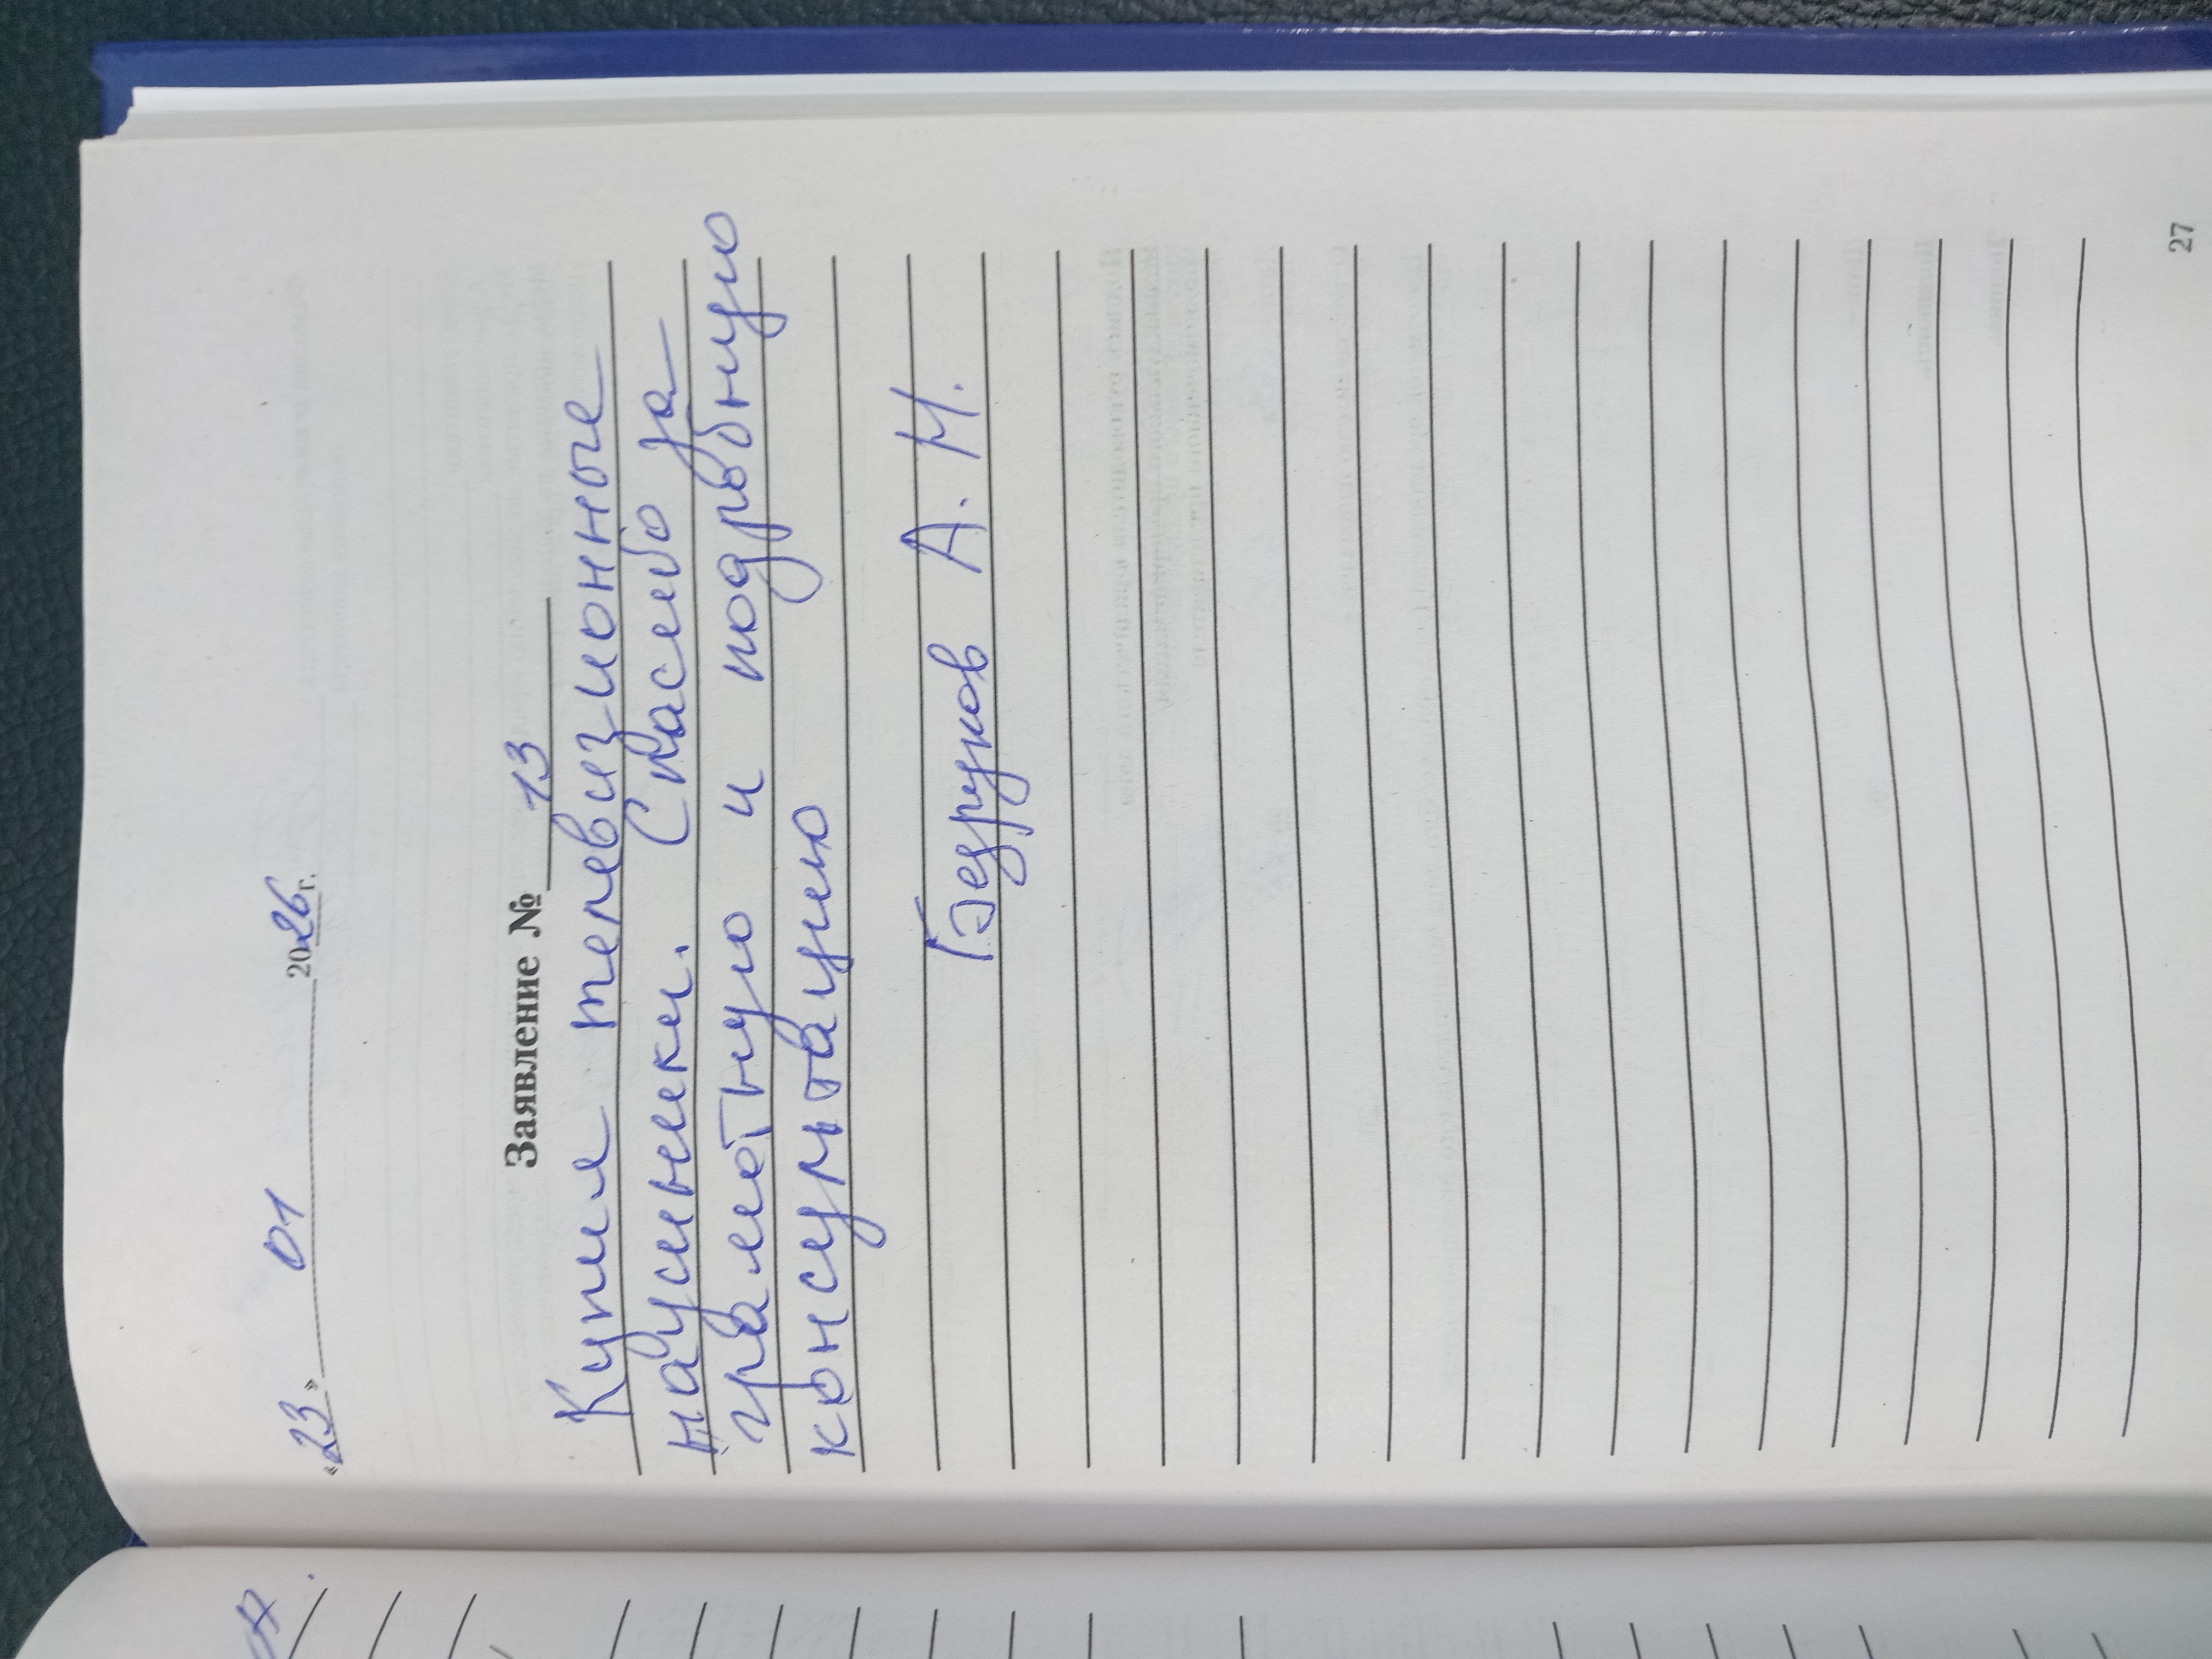 «23» 01 2026 г.
Заявление № 13
Купил телевизионные
наушники. Спасибо за
грамотную и подробную
консультацию
Безруков А. Н.
27